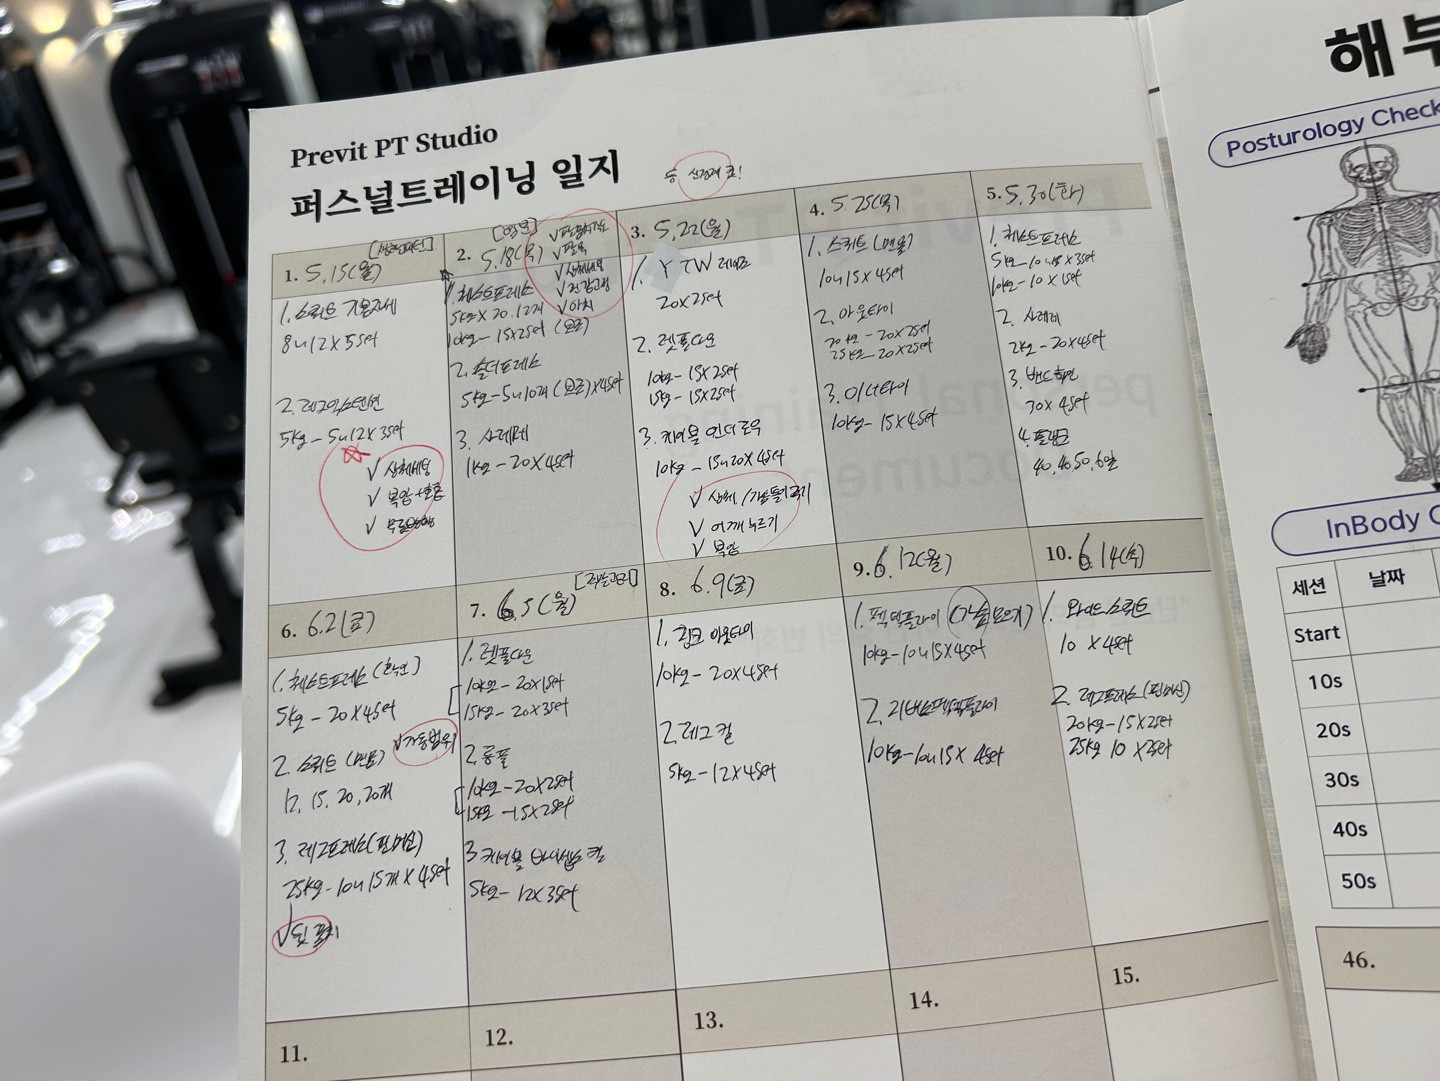 Previt PT Studio
퍼스널트레이닝 일지
1. 5.15(월)
1. 스쿼트 기본자세
8~12 X 5set
2. 레그익스텐션
5kg - 5~12 X 3set
√ 상체세팅
√ 복압+호흡
2. 5.18(목)
1. 체스트프레스
5kg X 20. 12개
10kg - 15X2set (보조)
2. 숄더프레스
5kg - 5~10개 (보조) X4set
3. 사레레
1kg - 20X4set
3. 5.22(월)
1. Y T W 레이즈
20X2set
2. 렛풀다운
10kg - 15X2set
15kg - 15X2set
3. 케이블 언더로우
10kg - 15~20X4set
√ 어깨 누르기
√ 복압
4. 5.25(목)
1. 스쿼트 (맨몸)
10~15 X 4set
2. 아웃타이
20kg - 20X2set
25kg - 20X2set
3. 이너타이
10kg - 15 X 4set
5. 5.30(화)
1. 체스트프레스
5kg - 10~15 X 3set
10kg - 10 X 1set
2. 사레레
2kg - 20X4set
3.
30X 4set
4. 플랭크
40, 40, 50, 60초
6. 6.2(금)
1. 체스트프레스
5kg - 20 X 4set
√ 가동범위
2. 스쿼트 (맨몸)
12, 15, 20, 20개
3. 레그프레스(핀머신)
25kg - 10~15개 X 4set
7. 6.5(월)
1. 렛풀다운
10kg - 20X1set
15kg - 20X3set
2. 롱풀
10kg - 20X2set
15kg - 15X2set
3. 케이블 바이셉스 컬
5kg - 12X3set
8. 6.9(금)
1. 힙크 아웃타이
10kg - 20X4set
2. 레그 컬
5kg - 12X4set
9. 6.12(월)
1. 펙덱플라이 (가슴 모으기)
10kg - 10~15X4set
2. 리버스펙덱플라이
10kg - 10~15X 4set
10. 6.14(수)
1. 와이드스쿼트
10 X4set
2. 레그프레스(핀머신)
20kg - 15X2set
25kg 10 X2set
11.
12.
13.
14.
15.
해부
Posturology Check
InBody C
세션 날짜
Start
10s
20s
30s
40s
50s
46.